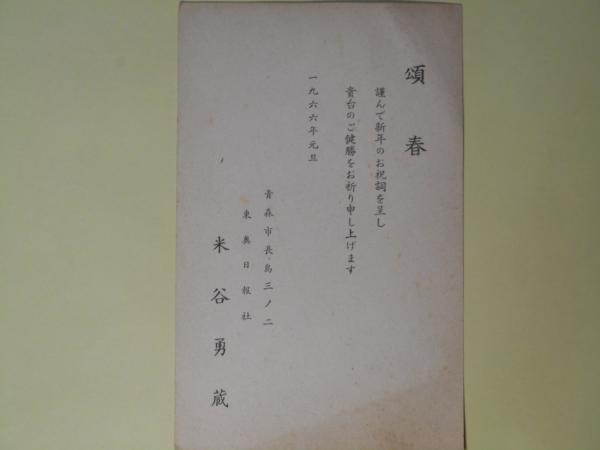 頌春
謹んで新年のお祝詞を呈し
貴台のご健勝をお祈り申し上げます
一九六六年元旦
青森市長島三ノ二
東奥日報社
米谷勇蔵